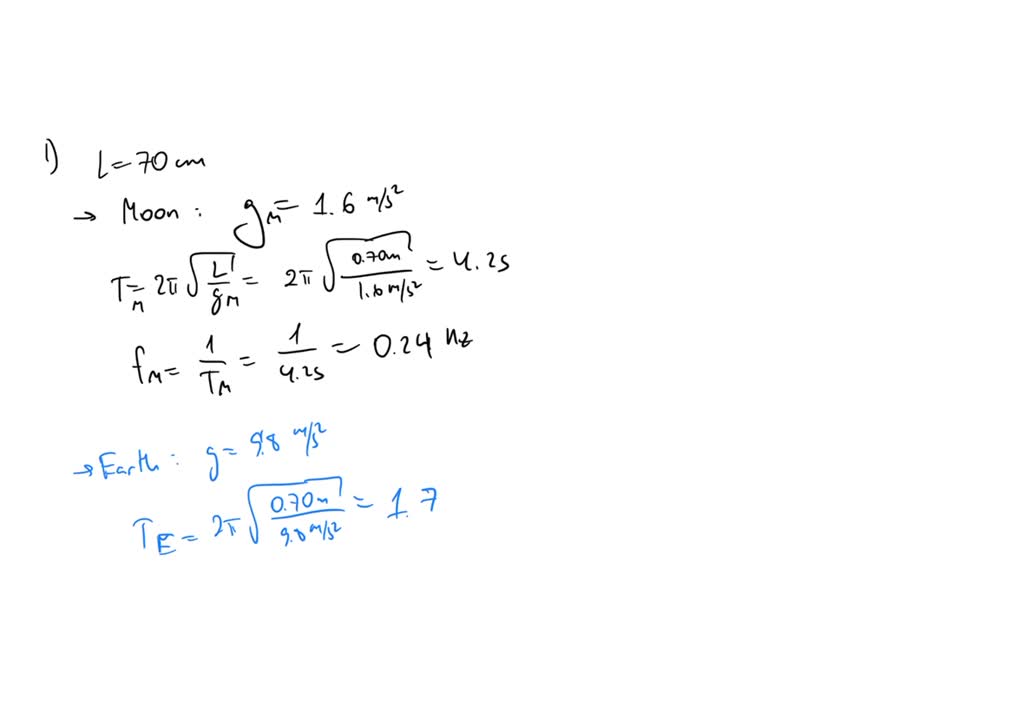 1) L = 70 cm
→ Moon : g_M = 1.6 m/s²
T_M = 2π √(L/g_M) = 2π √(0.70m/1.6 m/s²) = 4.2s
f_M = 1/T_M = 1/4.2s = 0.24 Hz
→ Earth : g = 9.8 m/s²
T_E = 2π √(0.70m/9.8 m/s²) = 1.7